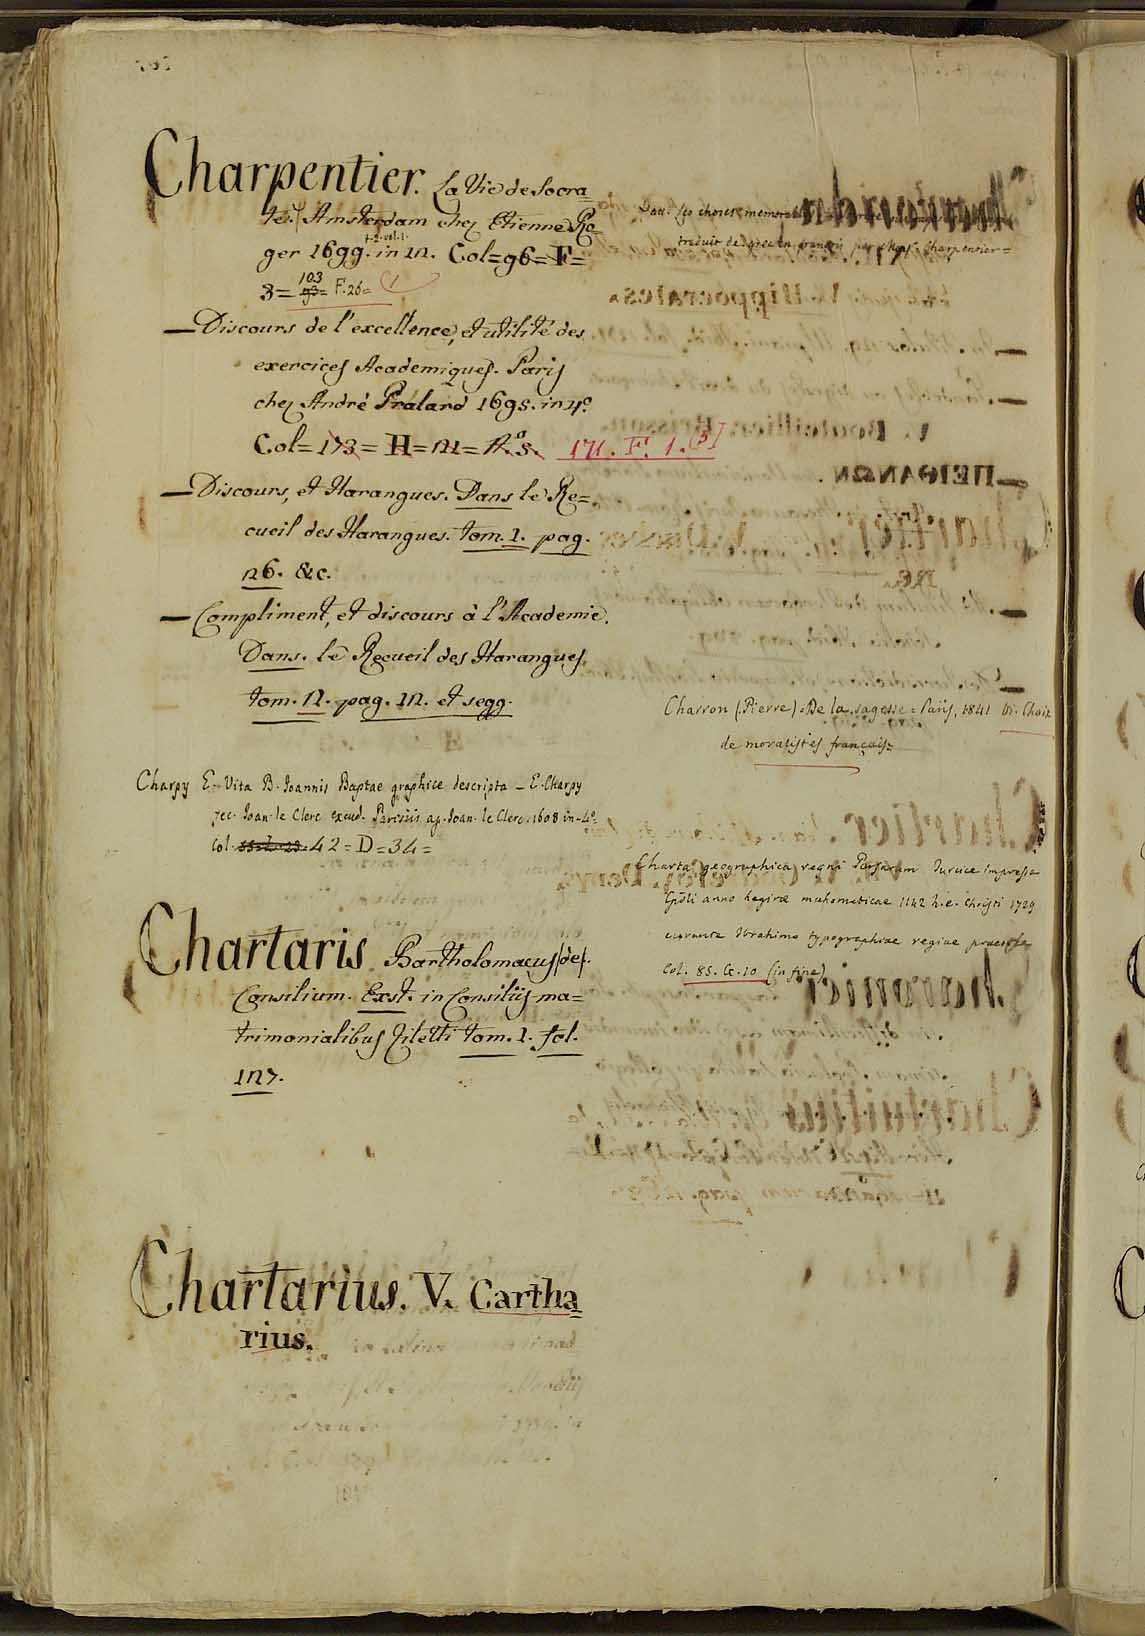 Charpentier. La Vie de Socra=
tes. Amsterdam chez Etienne Ro=
ger 1699. in 12. Col=96=F=
t.2.vol.1.
3= 93= F.26=
103
—Discours de l'excellence, et utilité des
exercices Academiques. Paris
chez André Pralard 1695. in 4º
Col=173=H=111= 171. F. 1.
—Discours, et Harangues. Dans le Re=
cueil des Harangues. tom. 1. pag.
126. &c.
—Compliment, et discours à l'Academie.
Dans. le Recueil des Harangues
tom. 12. pag. 12. et segg.
Charpy E. Vita B. Joannis Baptae graphice descripta — E. Charpy
fec. Joan. le Clerc excud. Parisiis ap. Joan. le Clerc. 1608 in-4º
Col. 42=D=34=
Chartaris Bartholomaeus (de).
Consilium. Exst. in Consiliis ma=
trimonialibus Ziletti tom. 1. fol.
127.
Chartarius. V. Cartha=
rius.
choses memorab
traduit de grec en français par Charpentier=
Charron (Pierre). De la sagesse= Paris, 1841 V. Choix
de moralistes français=
Charta geographica regni Persarum Turcice impressa
Cpoli anno hegirae mahometicae 1142 h.e. Christi 1729
curante Ibrahimo typographiae regiae praeside
Col. 85. G. 10 (in fine)